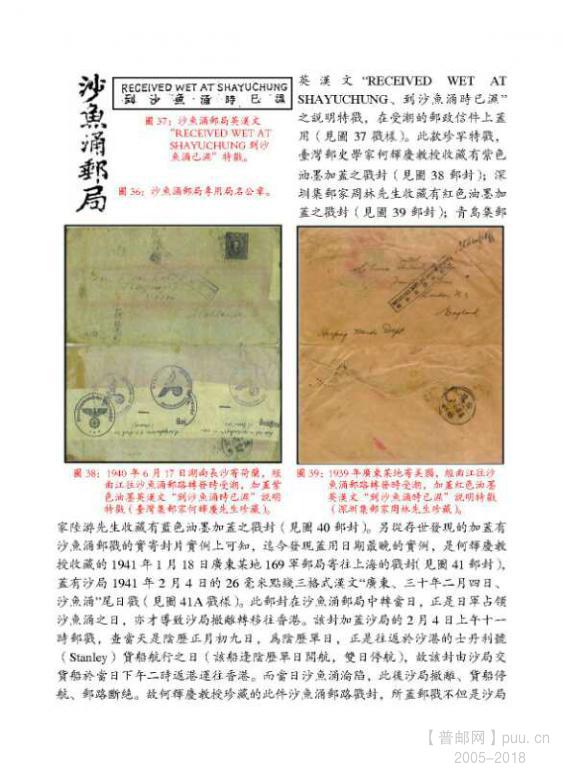 沙魚涌郵局
RECEIVED WET AT SHAYUCHUNG
到沙魚涌時已濕
圖 37：沙魚涌郵局英漢文
“RECEIVED WET AT
SHAYUCHUNG 到沙
魚涌已濕”特戳。
圖 36：沙魚涌郵局專用局名公章。
英漢文“RECEIVED WET AT
SHAYUCHUNG、到沙魚涌時已濕”
之說明特戳，在受潮的郵政信件上蓋
用（見圖 37 戳樣）。此款珍罕特戳，
臺灣郵史學家何輝慶教授收藏有紫色
油墨加蓋之戳封（見圖 38 郵封）；深
圳集郵家周林先生收藏有紅色油墨加
蓋之戳封（見圖 39 郵封）；青島集郵
England
圖 38：1940 年 6 月 17 日湖南長沙寄荷蘭，經
曲江往沙魚涌郵路轉發時受潮，加蓋紫
色油墨英漢文“到沙魚涌時已濕”說明
特戳（臺灣集郵家何輝慶先生珍藏）。
圖 39：1939 年廣東某地寄英國，經曲江往沙
魚涌郵路轉發時受潮，加蓋紅色油墨
英漢文“到沙魚涌時已濕”說明特戳
（深圳集郵家周林先生珍藏）。
家陸游先生收藏有藍色油墨加蓋之戳封（見圖 40 郵封）。另從存世發現的加蓋有
沙魚涌郵戳的實寄封片實例上可知，迄今發現蓋用日期最晚的實例，是何輝慶教
授收藏的 1941 年 1 月 18 日廣東某地 169 軍郵局寄往上海的戳封(見圖 41 郵封)，
蓋有沙局 1941 年 2 月 4 日的 26 毫米點綫三格式漢文“廣東、三十年二月四日、
沙魚涌”尾日戳（見圖 41A 戳樣）。此郵封在沙魚涌郵局中轉當日，正是日軍占領
沙魚涌之日，亦才導致沙局撤離轉移往香港。該封加蓋沙局的 2 月 4 日上午十一
時郵戳，查當天是陰歷正月初九日，爲陰歷單日，正是往返於沙港的士丹利號
（Stanley）貨船航行之日（該船逢陰歷單日開航，雙日停航），故該封由沙局交
貨船於當日下午二時返港運往香港。而當日沙魚涌淪陷，此後沙局撤離、貨船停
航、郵路斷絕。故何輝慶教授珍藏的此件沙魚涌郵路戳封，所蓋郵戳不但是沙局
【普邮网】puu.cn
2005-2018